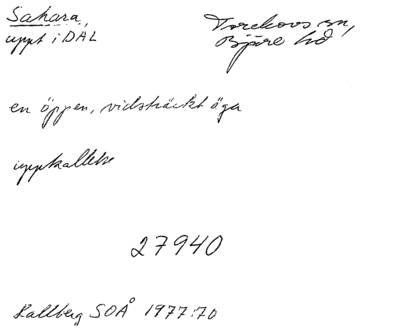 Sahara,
uppt i DAL
Torekovs sn,
Bjäre hd
en öppen, vidsträckt äga
uppkallelse
27940
Hallberg SOÅ 1977:70